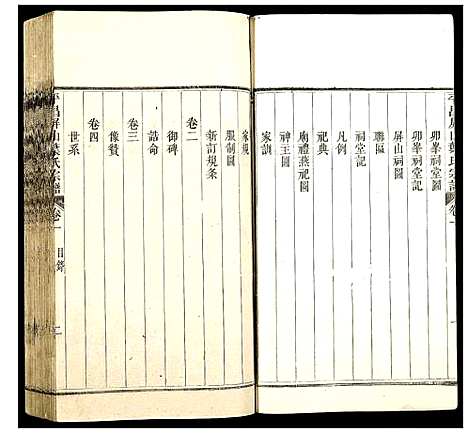 平昌屏山葉氏宗譜 卷一
卯峯祠堂圖
卯峯祠堂記
屏山祠圖
聯匾
祠堂記
凡例
祀典
廟禮燕祀圖
神主圖
家訓
家規
服制圖
新訂規条
卷二
御碑
誥命
卷三
像贊
卷四
世系
平昌屏山葉氏宗譜 卷一 目錄 二